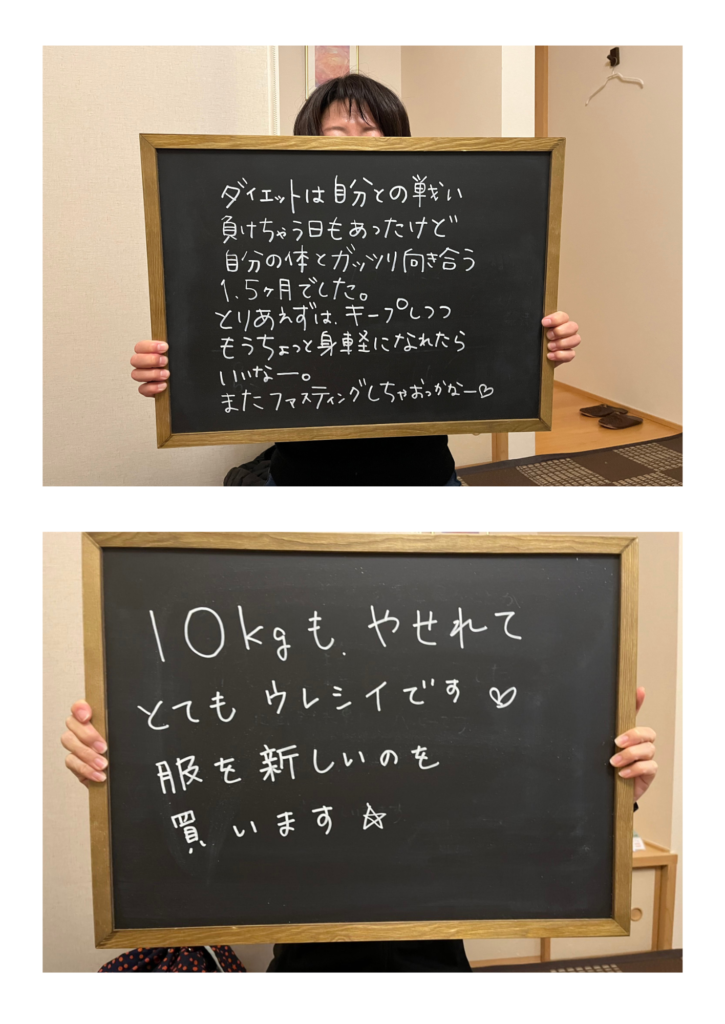 ダイエットは自分との戦い
負けちゃう日もあったけど
自分の体とガッツリ向き合う
1.5ヶ月でした。
とりあえずは、キープしつつ
もうちょっと身軽になれたら
いいなー。
またファスティングしちゃおっかなー♡
10kgも、やせれて
とても ウレシイです♡
服を新しいのを
買います☆